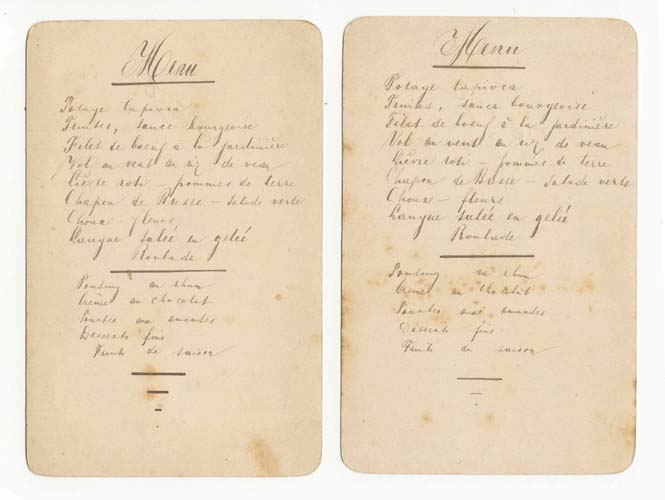 Menu
Potage tapioca
Truites, sauce bourgeoise
Filet de boeuf à la jardinière
Vol au vent au riz de veau
Lièvre roti - pommes de terre
Chapon de Bresse - salade verte
Choux-fleurs
Langue salée en gelée
Roulade
Pouding au rhum
Crème au chocolat
Tourtes aux amandes
Desserts fins
Fruits de saison
Menu
Potage tapioca
Truites, sauce bourgeoise
Filet de boeuf à la jardinière
Vol au vent au riz de veau
Lièvre roti - pommes de terre
Chapon de Bresse - salade verte
Choux - fleurs
Langue salée en gelée
Roulade
Pouding au rhum
Crème au chocolat
Tourtes aux amandes
Desserts fins
Fruits de saison